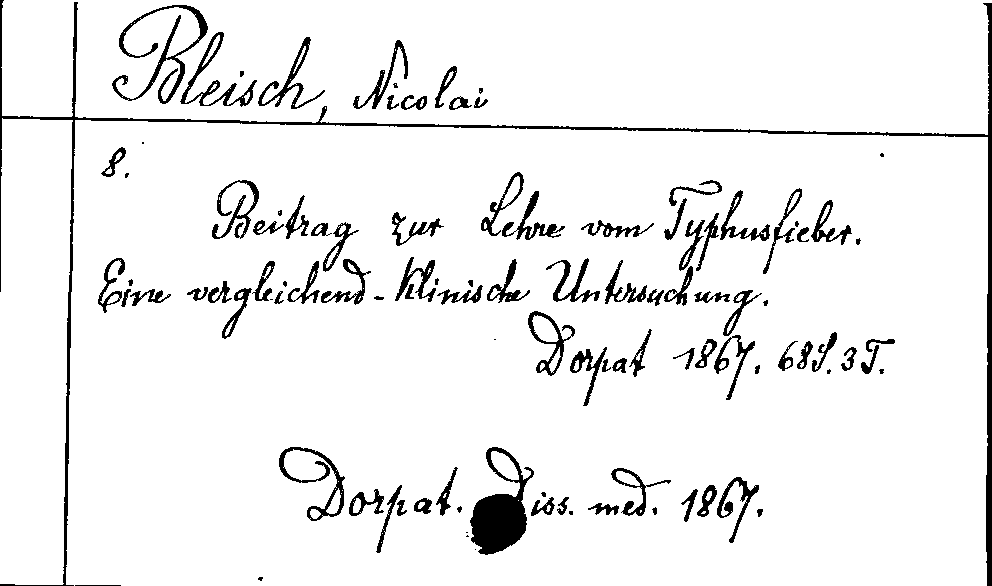 Bleisch, Nicolai
8.
Beitrag zur Lehre vom Typhusfieber.
Eine vergleichend-klinische Untersuchung.
Dorpat 1867. 68S. 3T.
Dorpat. Diss. med. 1867.